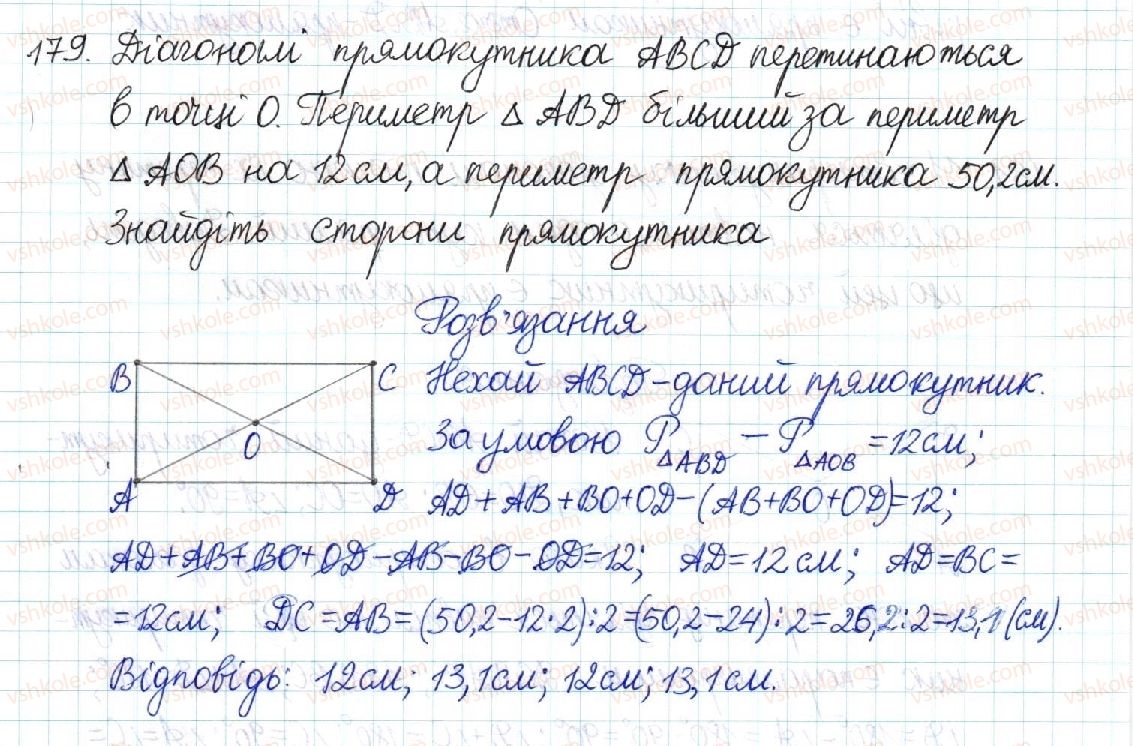 179. Діагоналі прямокутника ABCD перетинаються
в точці O. Периметр △ ABD більший за периметр
△ AOB на 12 см, а периметр прямокутника 50,2 см.
Знайдіть сторони прямокутника
Розв'язання
B C Нехай ABCD – даний прямокутник.
O За умовою P△ABD – P△AOB = 12 см;
A D AD + AB + BO + OD – (AB + BO + OD) = 12;
AD + AB + BO + OD – AB – BO – OD = 12; AD = 12 см; AD = BC =
= 12 см; DC = AB = (50,2 – 12·2) : 2 = (50,2 – 24) : 2 = 26,2 : 2 = 13,1 (см).
Відповідь: 12 см; 13,1 см; 12 см; 13,1 см.